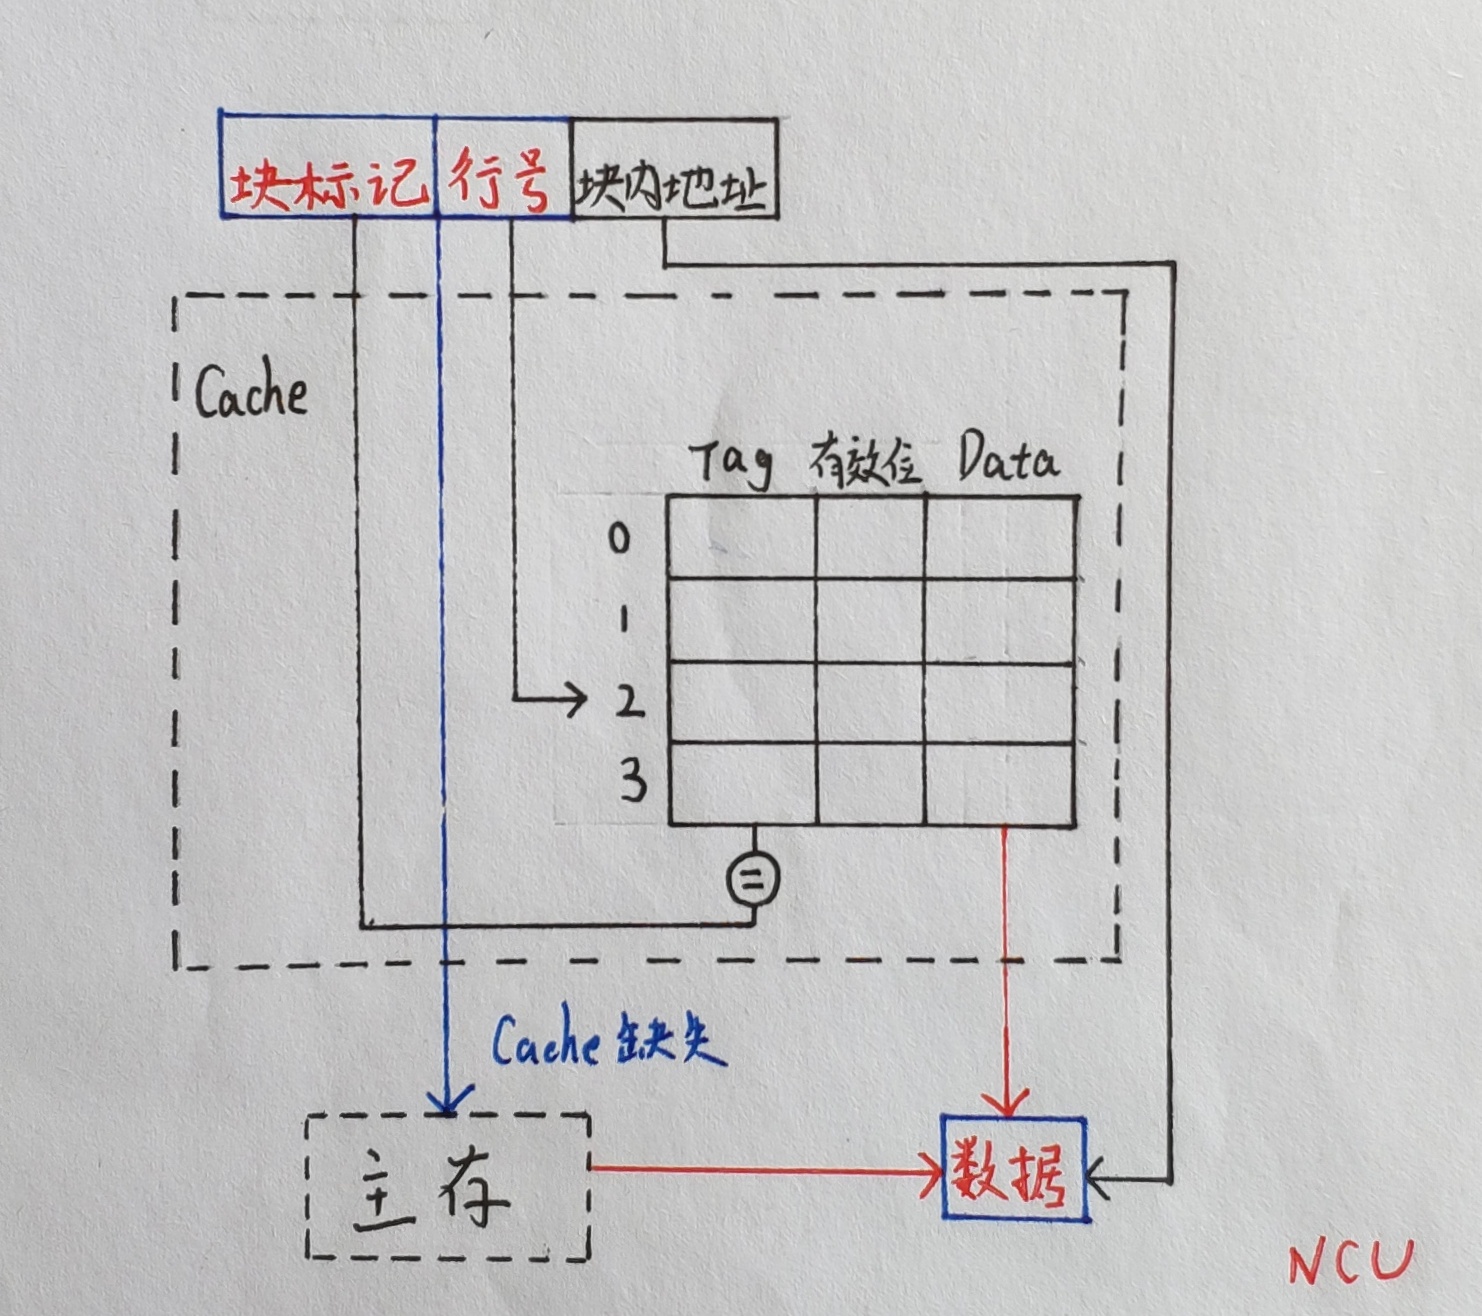 块标记 行号 块内地址
Cache
Tag 有效位 Data
0
1
2
3
=
Cache 缺失
主存
数据
NCU